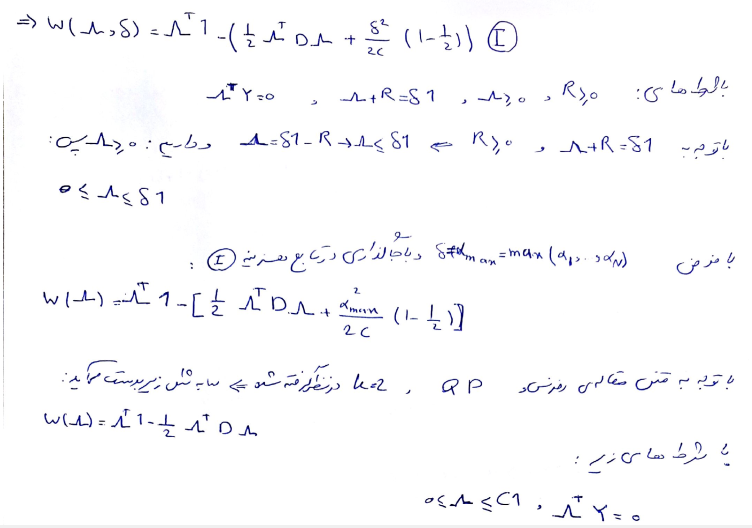 ⇒ W(Λ,δ) = Λᵀ1 - (½ ΛᵀDΛ + δ²/2C (1-½)) Ⓘ
با شرط های: ΛᵀY=0 , Λ+R=δ1 , Λ≥0 , R≥0
با توجه به Λ+R=δ1 و R≥0 ⇐ Λ=δ1-R → Λ≤δ1 و داریم: Λ≥0 پس:
0≤Λ≤δ1
با فرض δ=αmax=max(α1,...,αN) و با جاگذاری در تابع هزینه Ⓘ:
W(Λ)=Λᵀ1-[½ ΛᵀDΛ + α²max/2C (1-½)]
با توجه به متن مقاله‌ی رفرنس و QP , k=2 در نظر گرفته شده ⇐ به شکل زیر بدست می آید:
W(Λ)=Λᵀ1-½ ΛᵀDΛ
با شرط های زیر:
0≤Λ≤C1 , ΛᵀY=0